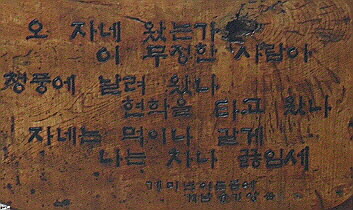 오 자네 왔는가
이 무정한 사람아
청풍에 날려 왔나
현학을 타고 왔나
자네는 먹이나 갈게
나는 차나 끓임세